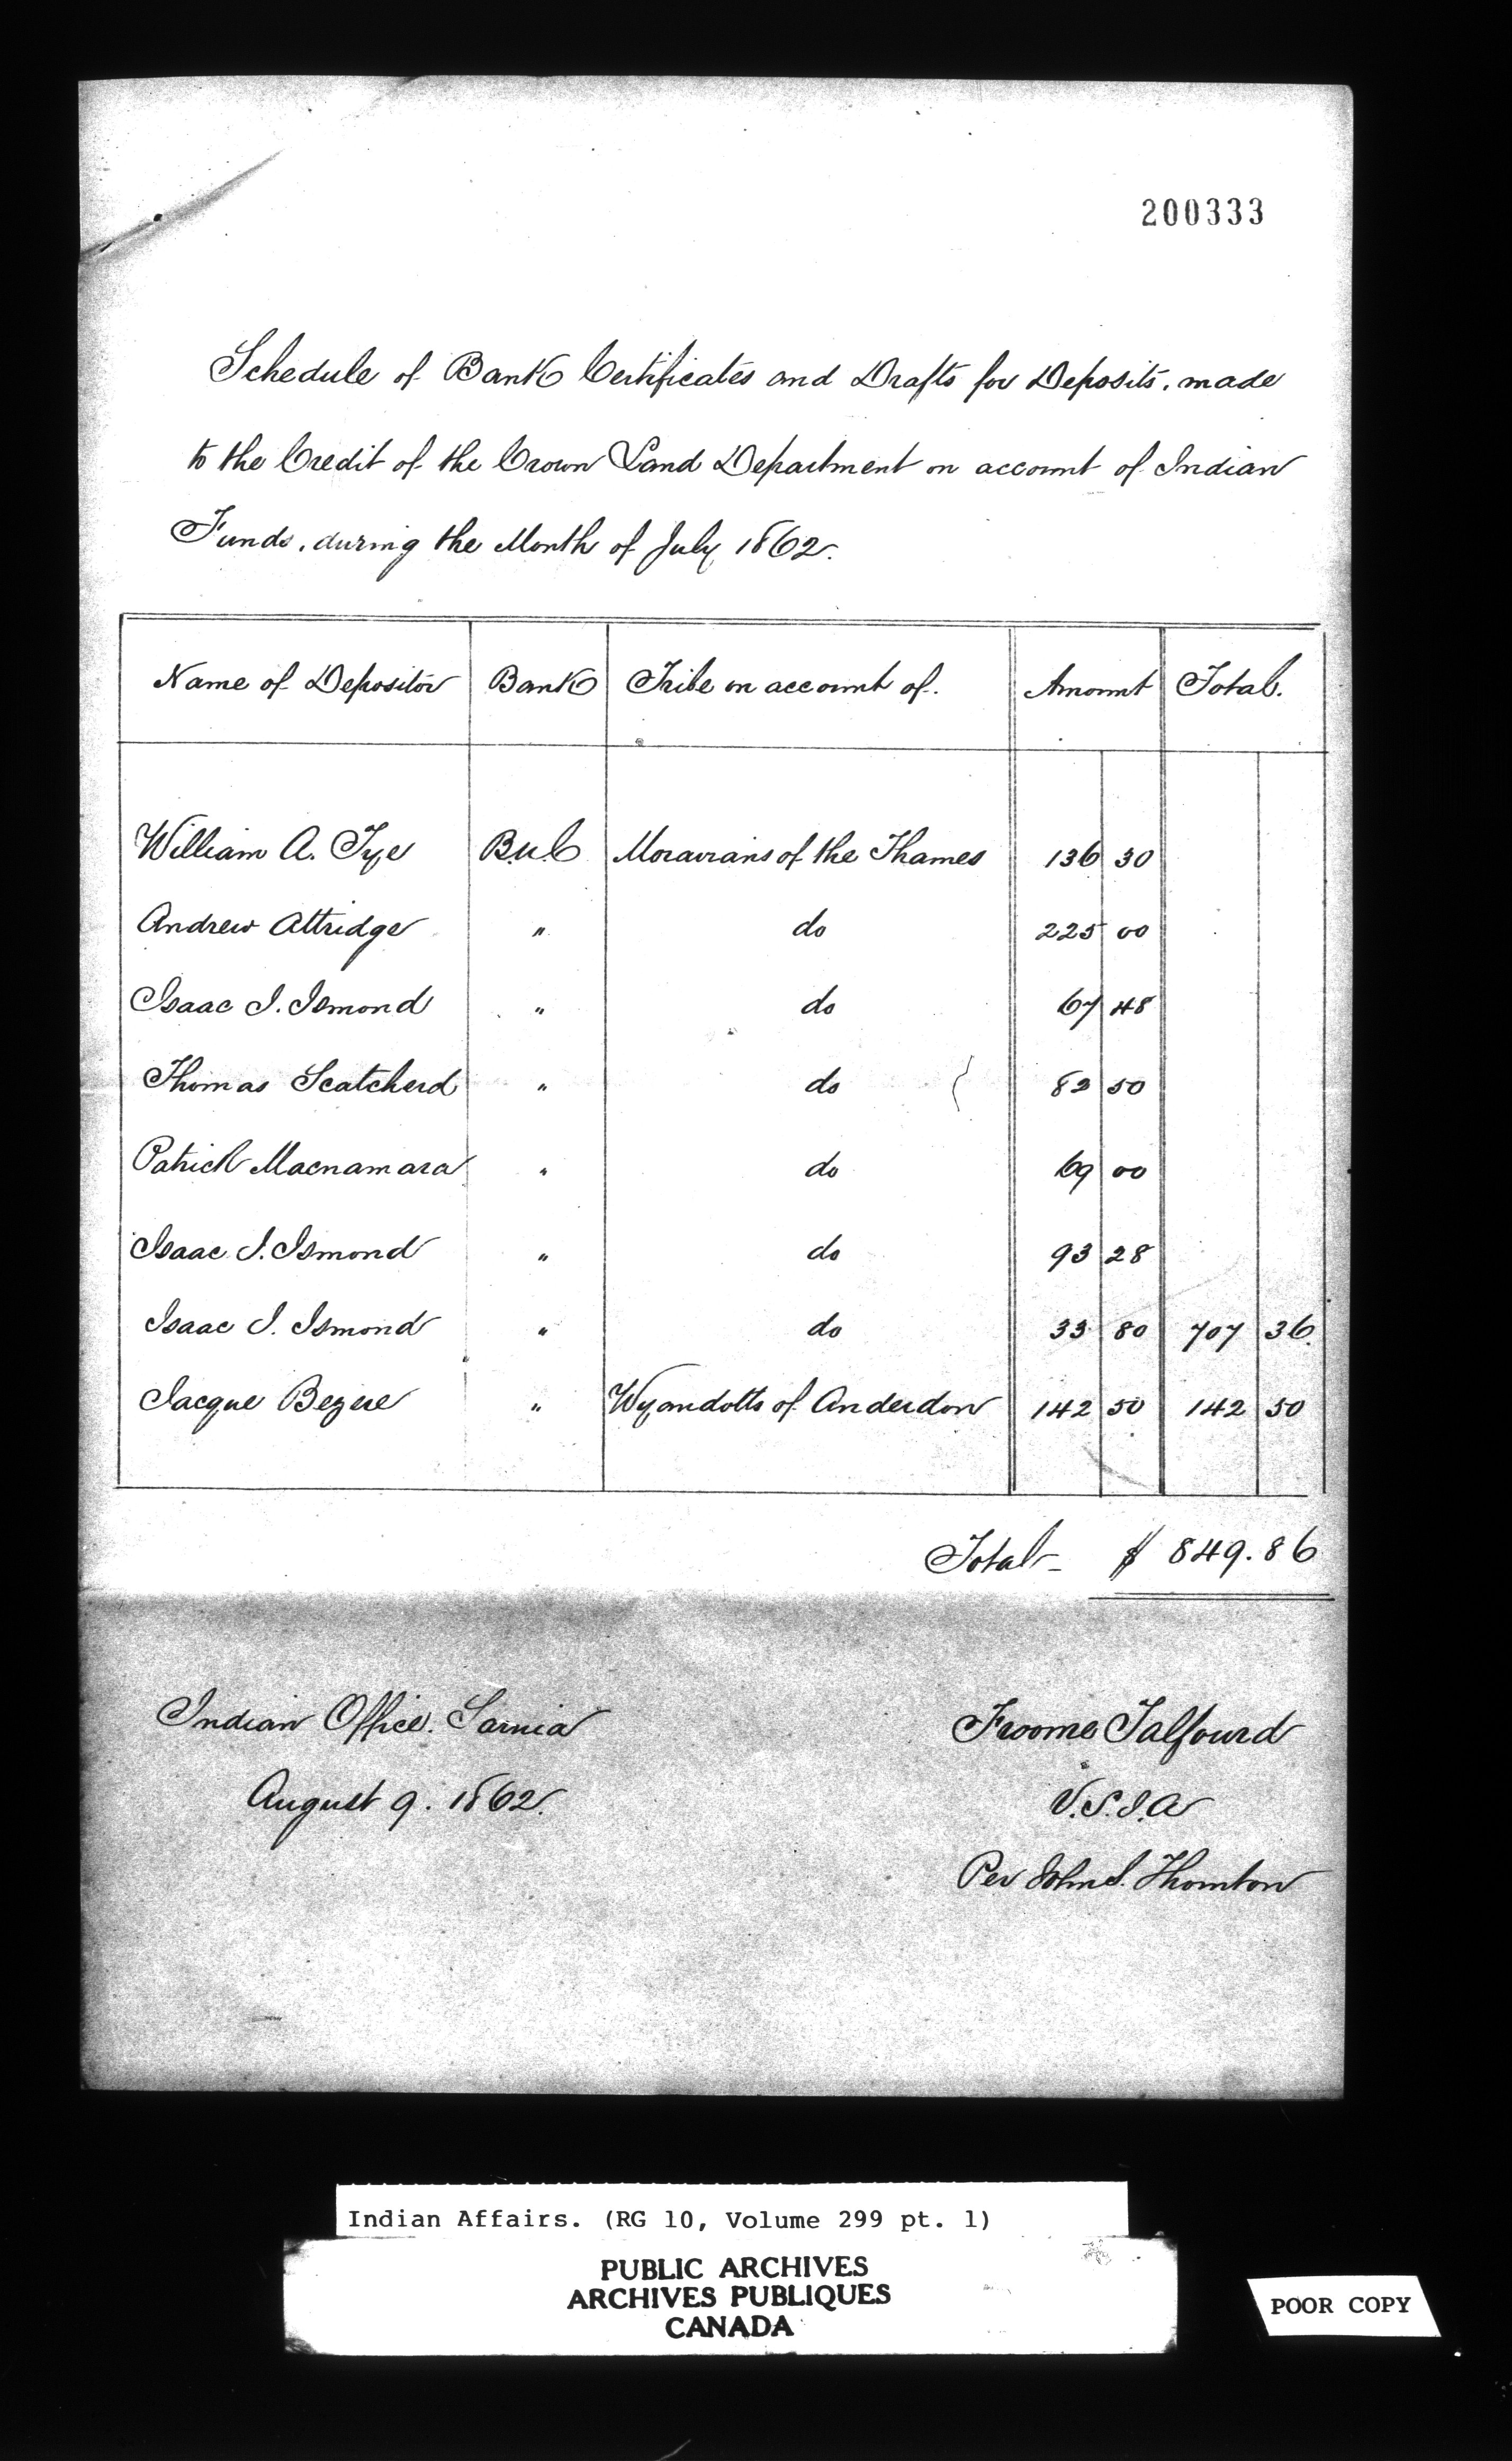 200333
Schedule of Bank Certificates and Drafts for Deposits, made
to the Credit of the Crown Land Department on account of Indian
Funds, during the Month of July 1862.
Name of Depositor Bank Tribe on account of. Amount Total.
William A. Tye B.U.C Moravians of the Thames 136 30
Andrew Attridge " do 225 00
Isaac I. Ismond " do 67 48
Thomas Scatcherd " do 82 50
Patrick Macnamara " do 69 00
Isaac I. Ismond " do 93 28
Isaac I. Ismond " do 33 80 707 36
Jacque Bezere " Wyandotts of Anderdon 142 50 142 50
Total - $ 849.86
Indian Office. Sarnia
August 9. 1862.
Froome Talfourd
V.S.I.A
Per John S. Thomton
Indian Affairs. (RG 10, Volume 299 pt. 1)
PUBLIC ARCHIVES
ARCHIVES PUBLIQUES
CANADA
POOR COPY